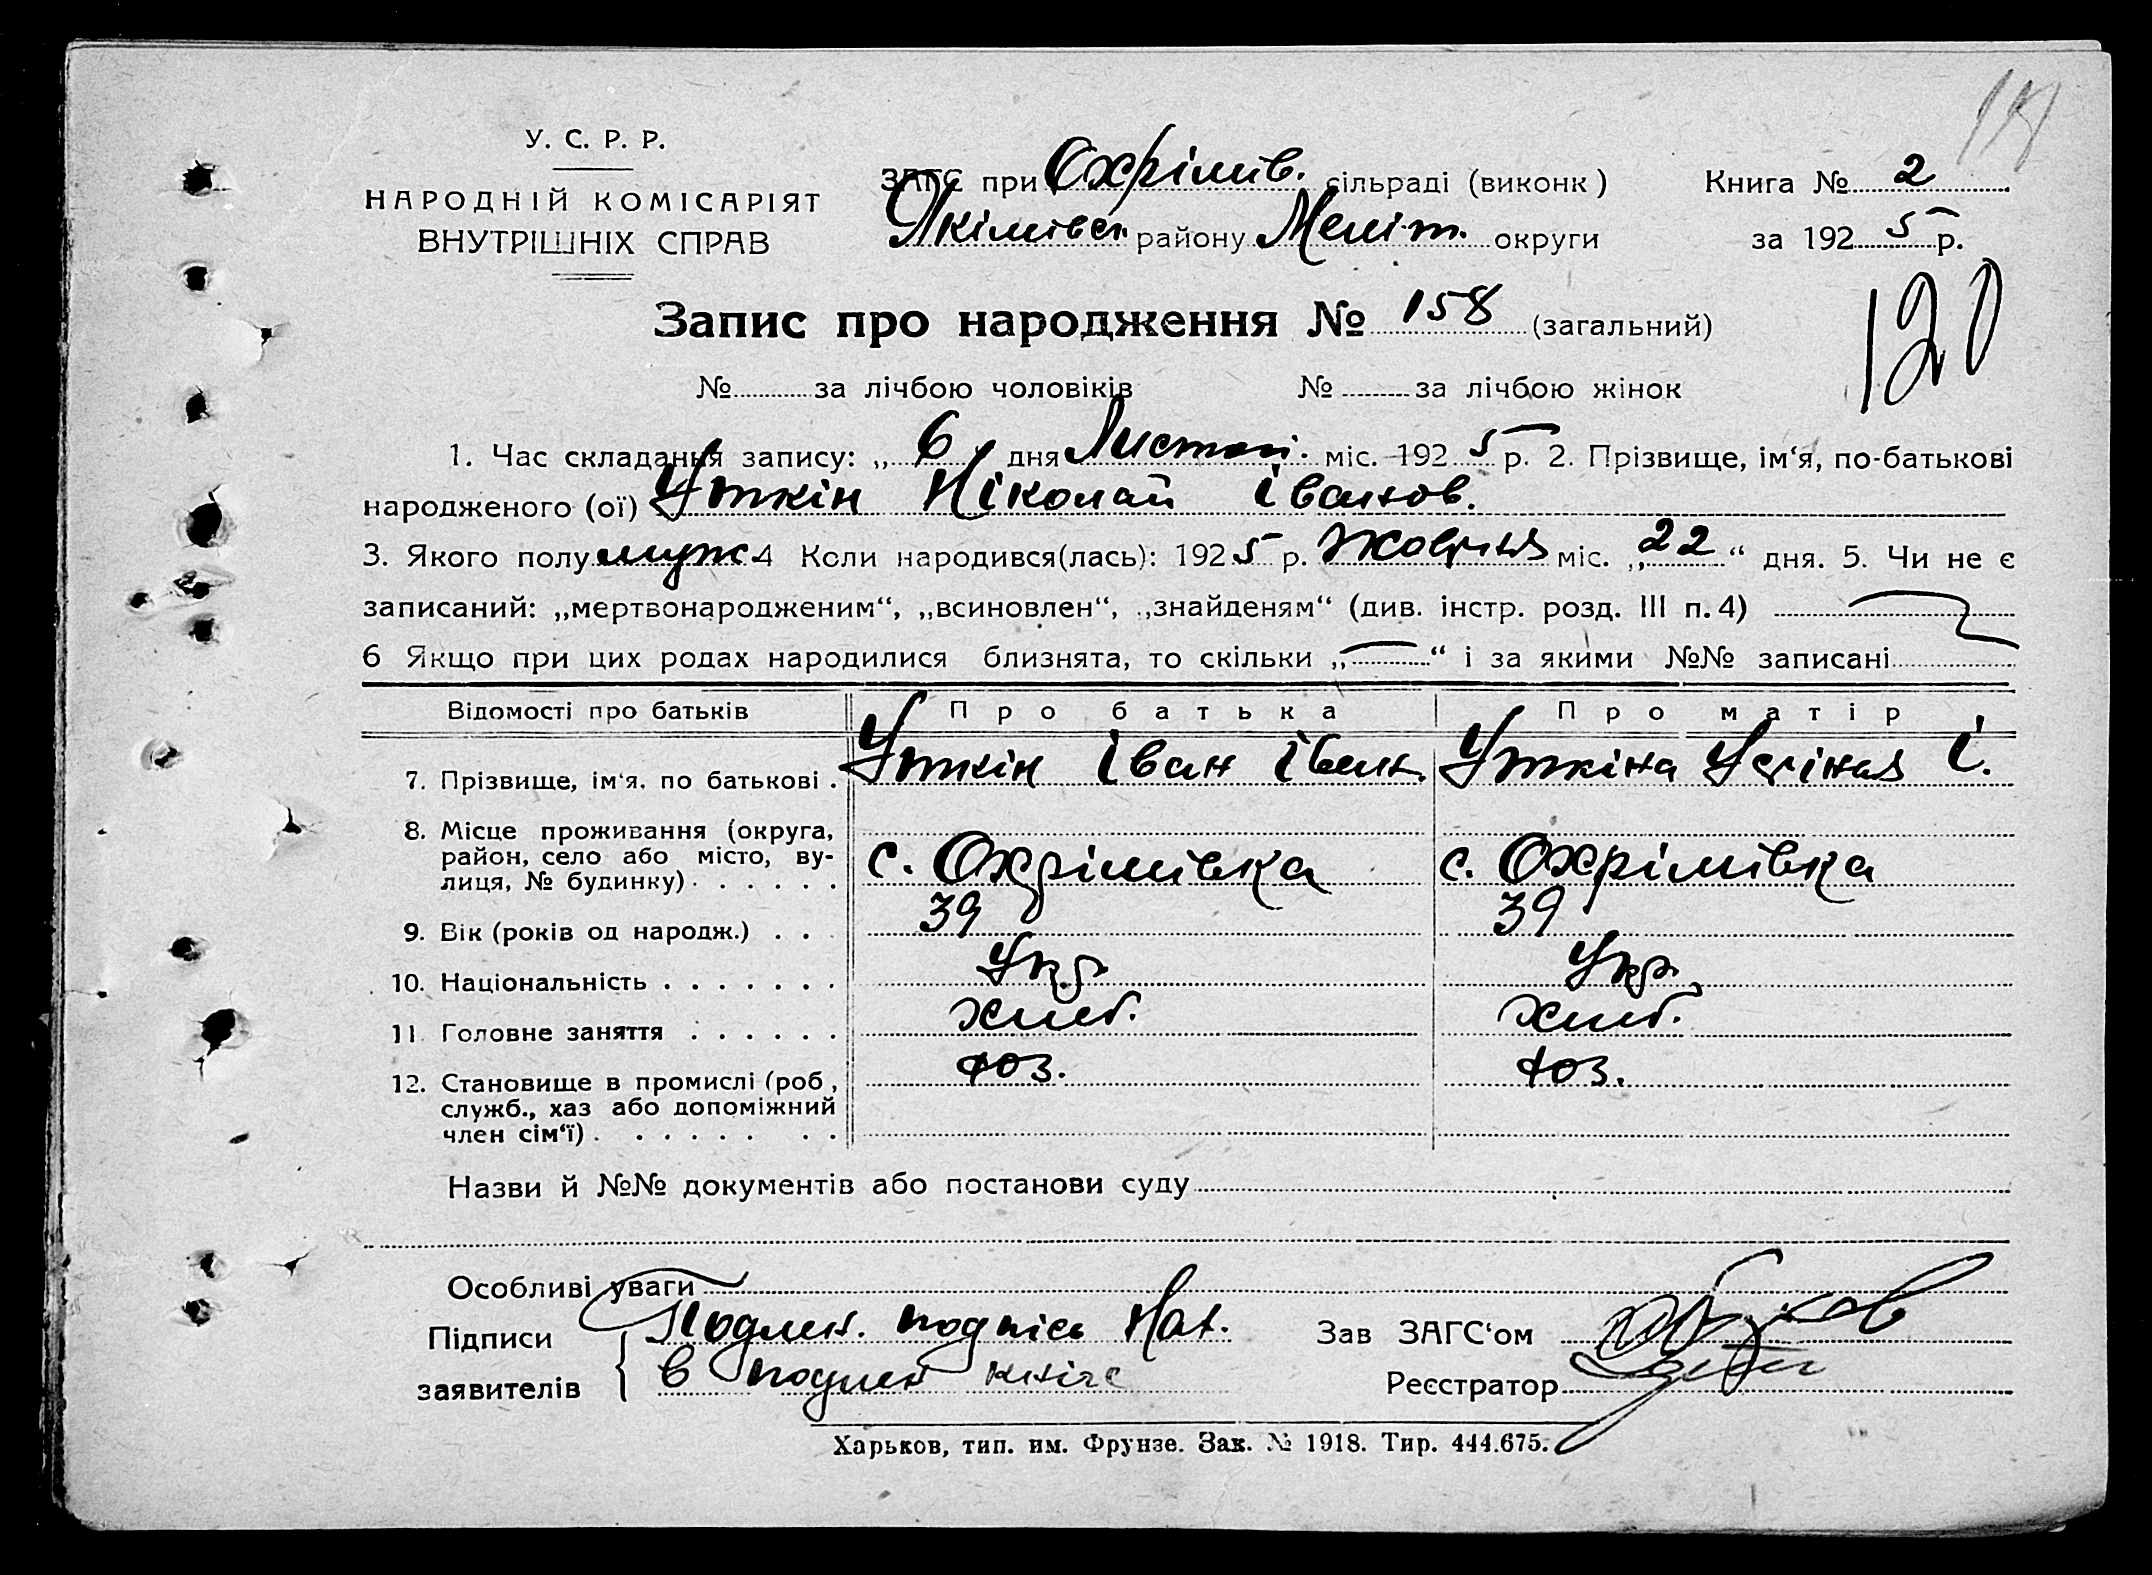 У. С. Р. Р.
НАРОДНІЙ КОМІСАРІЯТ
ВНУТРІШНІХ СПРАВ
ЗАГС при Охрімів. сільраді (виконк)
Якімівск. району Меліт. округи
Книга № 2
за 1925 р.
Запис про народження № 158 (загальний)
120
№ за лічбою чоловіків № за лічбою жінок
1. Час складання запису: „ 6 дня Листоп. міс. 1925 р. 2. Прізвище, ім‘я, по-батькові
народженого (ої) Уткін Ніколай Іванов.
3. Якого полу муж 4 Коли народився(лась): 1925 р. Жовтня міс. „22“ дня. 5. Чи не є
записаний: „мертвонародженим“, „всиновлен“, „знайденям“ (див. інстр. розд. III п. 4)
6 Якщо при цих родах народилися близнята, то скільки „—“ і за якими №№ записані
Відомості про батьків Про батька Про матір
7. Прізвище, ім‘я, по батькові . Уткін Іван Іван. Уткіна І.
8. Місце проживання (округа,
район, село або місто, ву-
лиця, № будинку) . . . . . . с. Охрімівка с. Охрімівка
9. Вік (років од народж.) . . . 39 39
10. Національність . . . . . . . Укр. Укр.
11 Головне заняття . . . . . . Хліб. Хліб.
12. Становище в промислі (роб.,
служб., хаз або допоміжний
член сім‘ї) . . . . . . . . хоз. хоз.
Назви й №№ документів або постанови суду
Особливі уваги
Підписи Подлен. подпісь Нах.
заявителів в подлен кнізе
Зав ЗАГС‘ом
Реєстратор
Харьков, тип. им. Фрунзе. Зак. № 1918. Тир. 444.675.